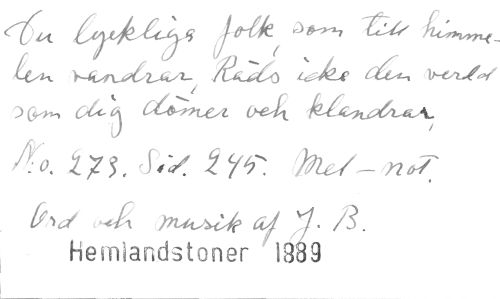 Du lyckliga folk, som till himme-
len vandrar, Räds icke den verld
som dig dömer och klandrar,
No. 273. Sid. 245. Mel-not.
Ord och musik af J. B.
Hemlandstoner 1889